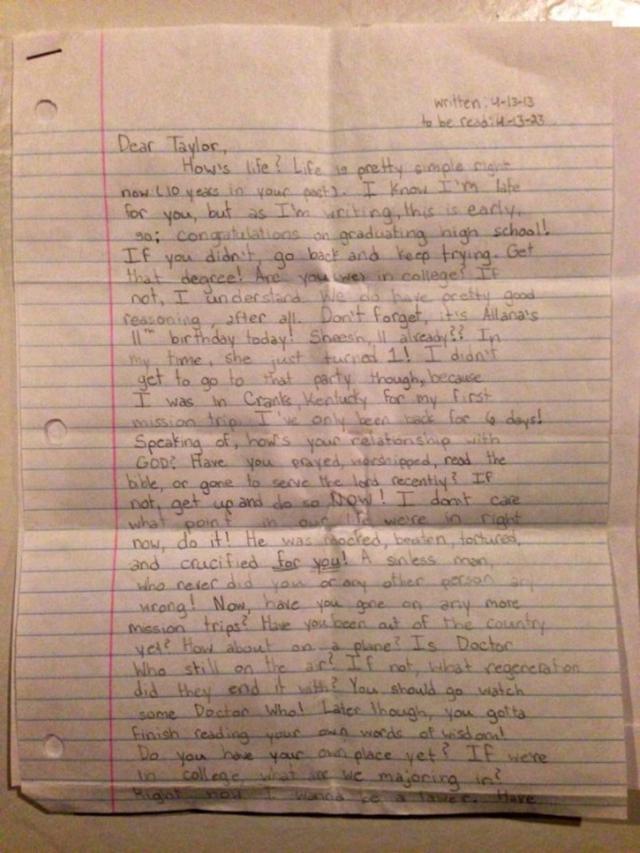 written: 4-13-13
to be read: 4-13-23
Dear Taylor,
How's life? Life is pretty simple right
now (10 years in your past). I know I'm late
for you, but as I'm writing, this is early,
so; congratulations on graduating high school!
If you didn't, go back and keep trying. Get
that degree! Are you (we) in college? If
not, I understand. We do have pretty good
reasoning, after all. Don't forget, it's Allana's
11th birthday today! Sheesh, 11 already?! In
my time, she just turned 1! I didn't
get to go to that party though, because
I was in Cranks, Kentucky for my first
mission trip. I've only been back for 6 days!
Speaking of, how's your relationship with
GOD? Have you prayed, worshipped, read the
bible, or gone to serve the lord recently? If
not, get up and do so NOW! I don't care
what point in our life we're in right
now, do it! He was mocked, beaten, tortured,
and crucified for you! A sinless man,
who never did you or any other person any
wrong! Now, have you gone on any more
mission trips? Have you been out of the country
yet? How about on a plane? Is Doctor
Who still on the air? If not, what regeneration
did they end it with? You should go watch
some Doctor Who! Later though, you gotta
finish reading your own words of wisdom!
Do you have your own place yet? If we're
in college, what are we majoring in?
Right now I wanna be a lawer. Have